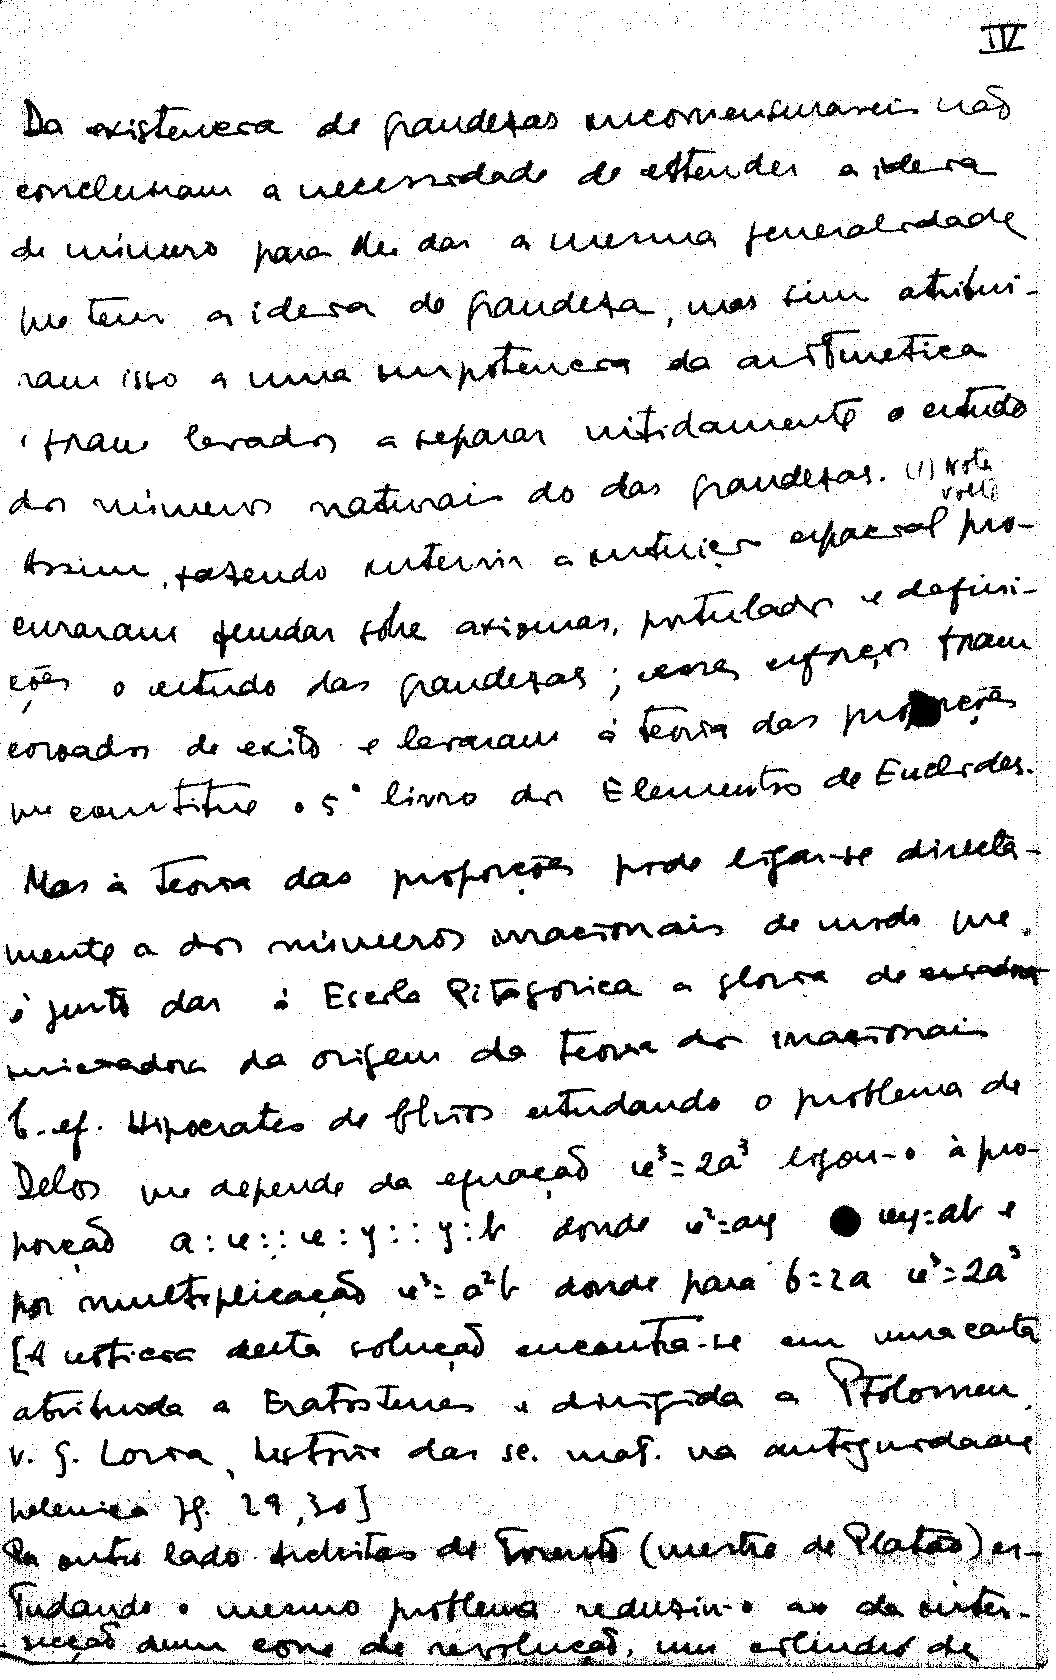 IV
Da existencia de grandezas incomensuraveis não
concluiram a necessidade de estender a ideia
de número para lhe dar a mesma generalidade
que tem a ideia de grandeza, mas sim atribui-
ram isso a uma impotencia da aritmetica
e foram levados a separar nitidamente o estudo
dos números naturais do das grandezas. (1) Nota
volta
Assim, fazendo intervir a intuição espacial pro-
curaram fundar sôbre axiomas, postulados e defini-
ções o estudo das grandezas; esses esforços foram
coroados de exito e levaram à teoria das proporções
que constitue o 5º livro dos Elementos de Euclides.
Mas à teoria das proporções pode ligar-se directa-
mente a dos números irracionais de modo que
é justo dar à Escola Pitagorica a gloria de
iniciadora da origem da teoria dos irracionais
C. ef. Hipocrates de Chios estudando o problema de
Delos que depende da equação x³=2a³ ligou-o à pro-
porção a:x::x:y::y:b donde x²=ay xy=ab e
por multiplicação x³=a²b donde para b=2a x³=2a³
[A noticia desta solução encontra-se em uma carta
atribuida a Eratostenes e dirigida a Ptolomeu
v. G. Loria, historia das sc. mat. na antiguidade
helenica pg. 29,30]
Por outro lado Architas de Tarento (mestre de Platão) es-
tudando o mesmo problema reduziu-o ao da inter-
secção dum cone de revolução, um cilindro de